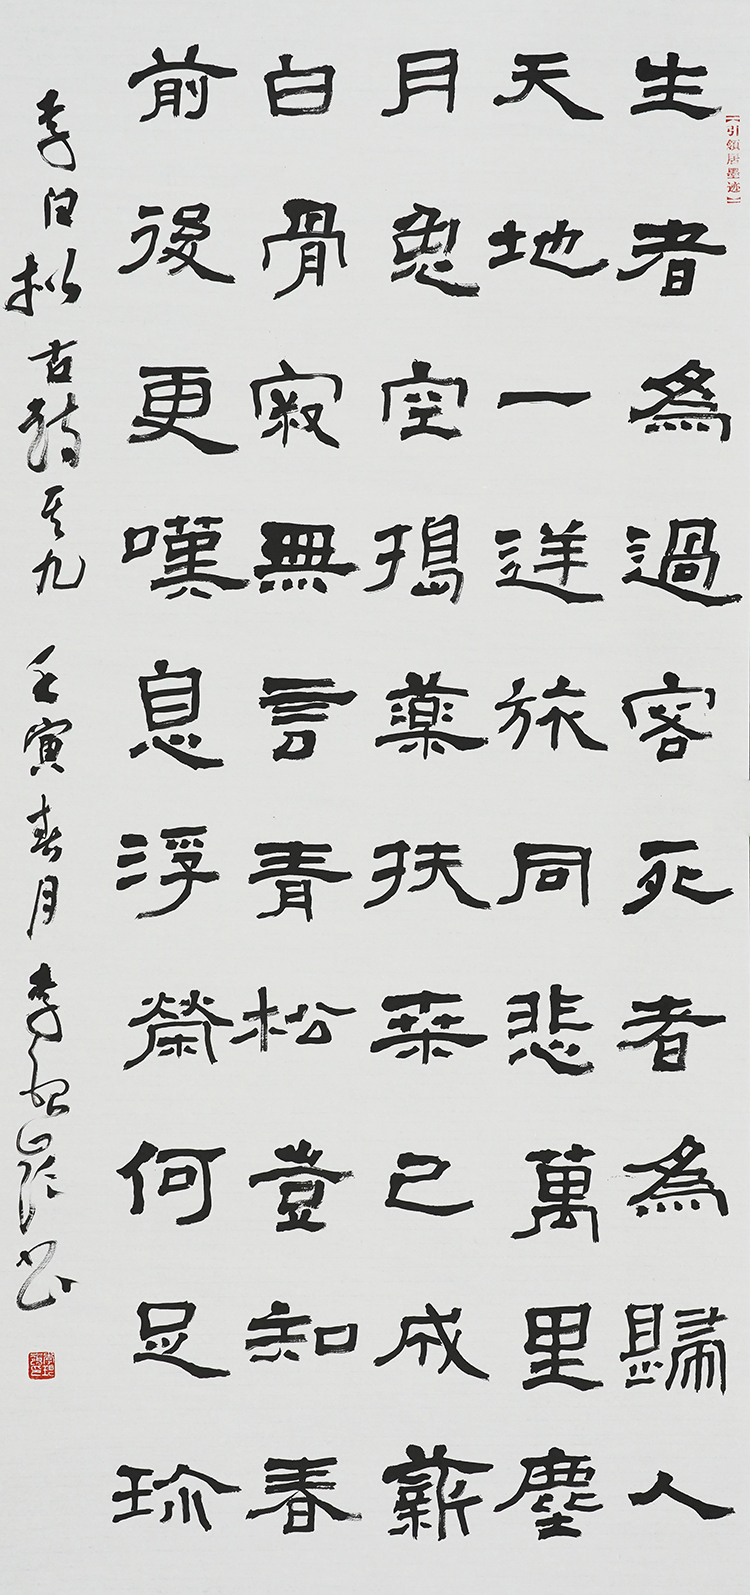 【引领居墨迹】
生者為過客死者為歸人
天地一逆旅同悲萬里塵
月兔空搗藥扶桒已成薪
白骨寂無言青松豈知春
前後更嘆息浮榮何足珍
李白拟古詩其九 壬寅春月 李书